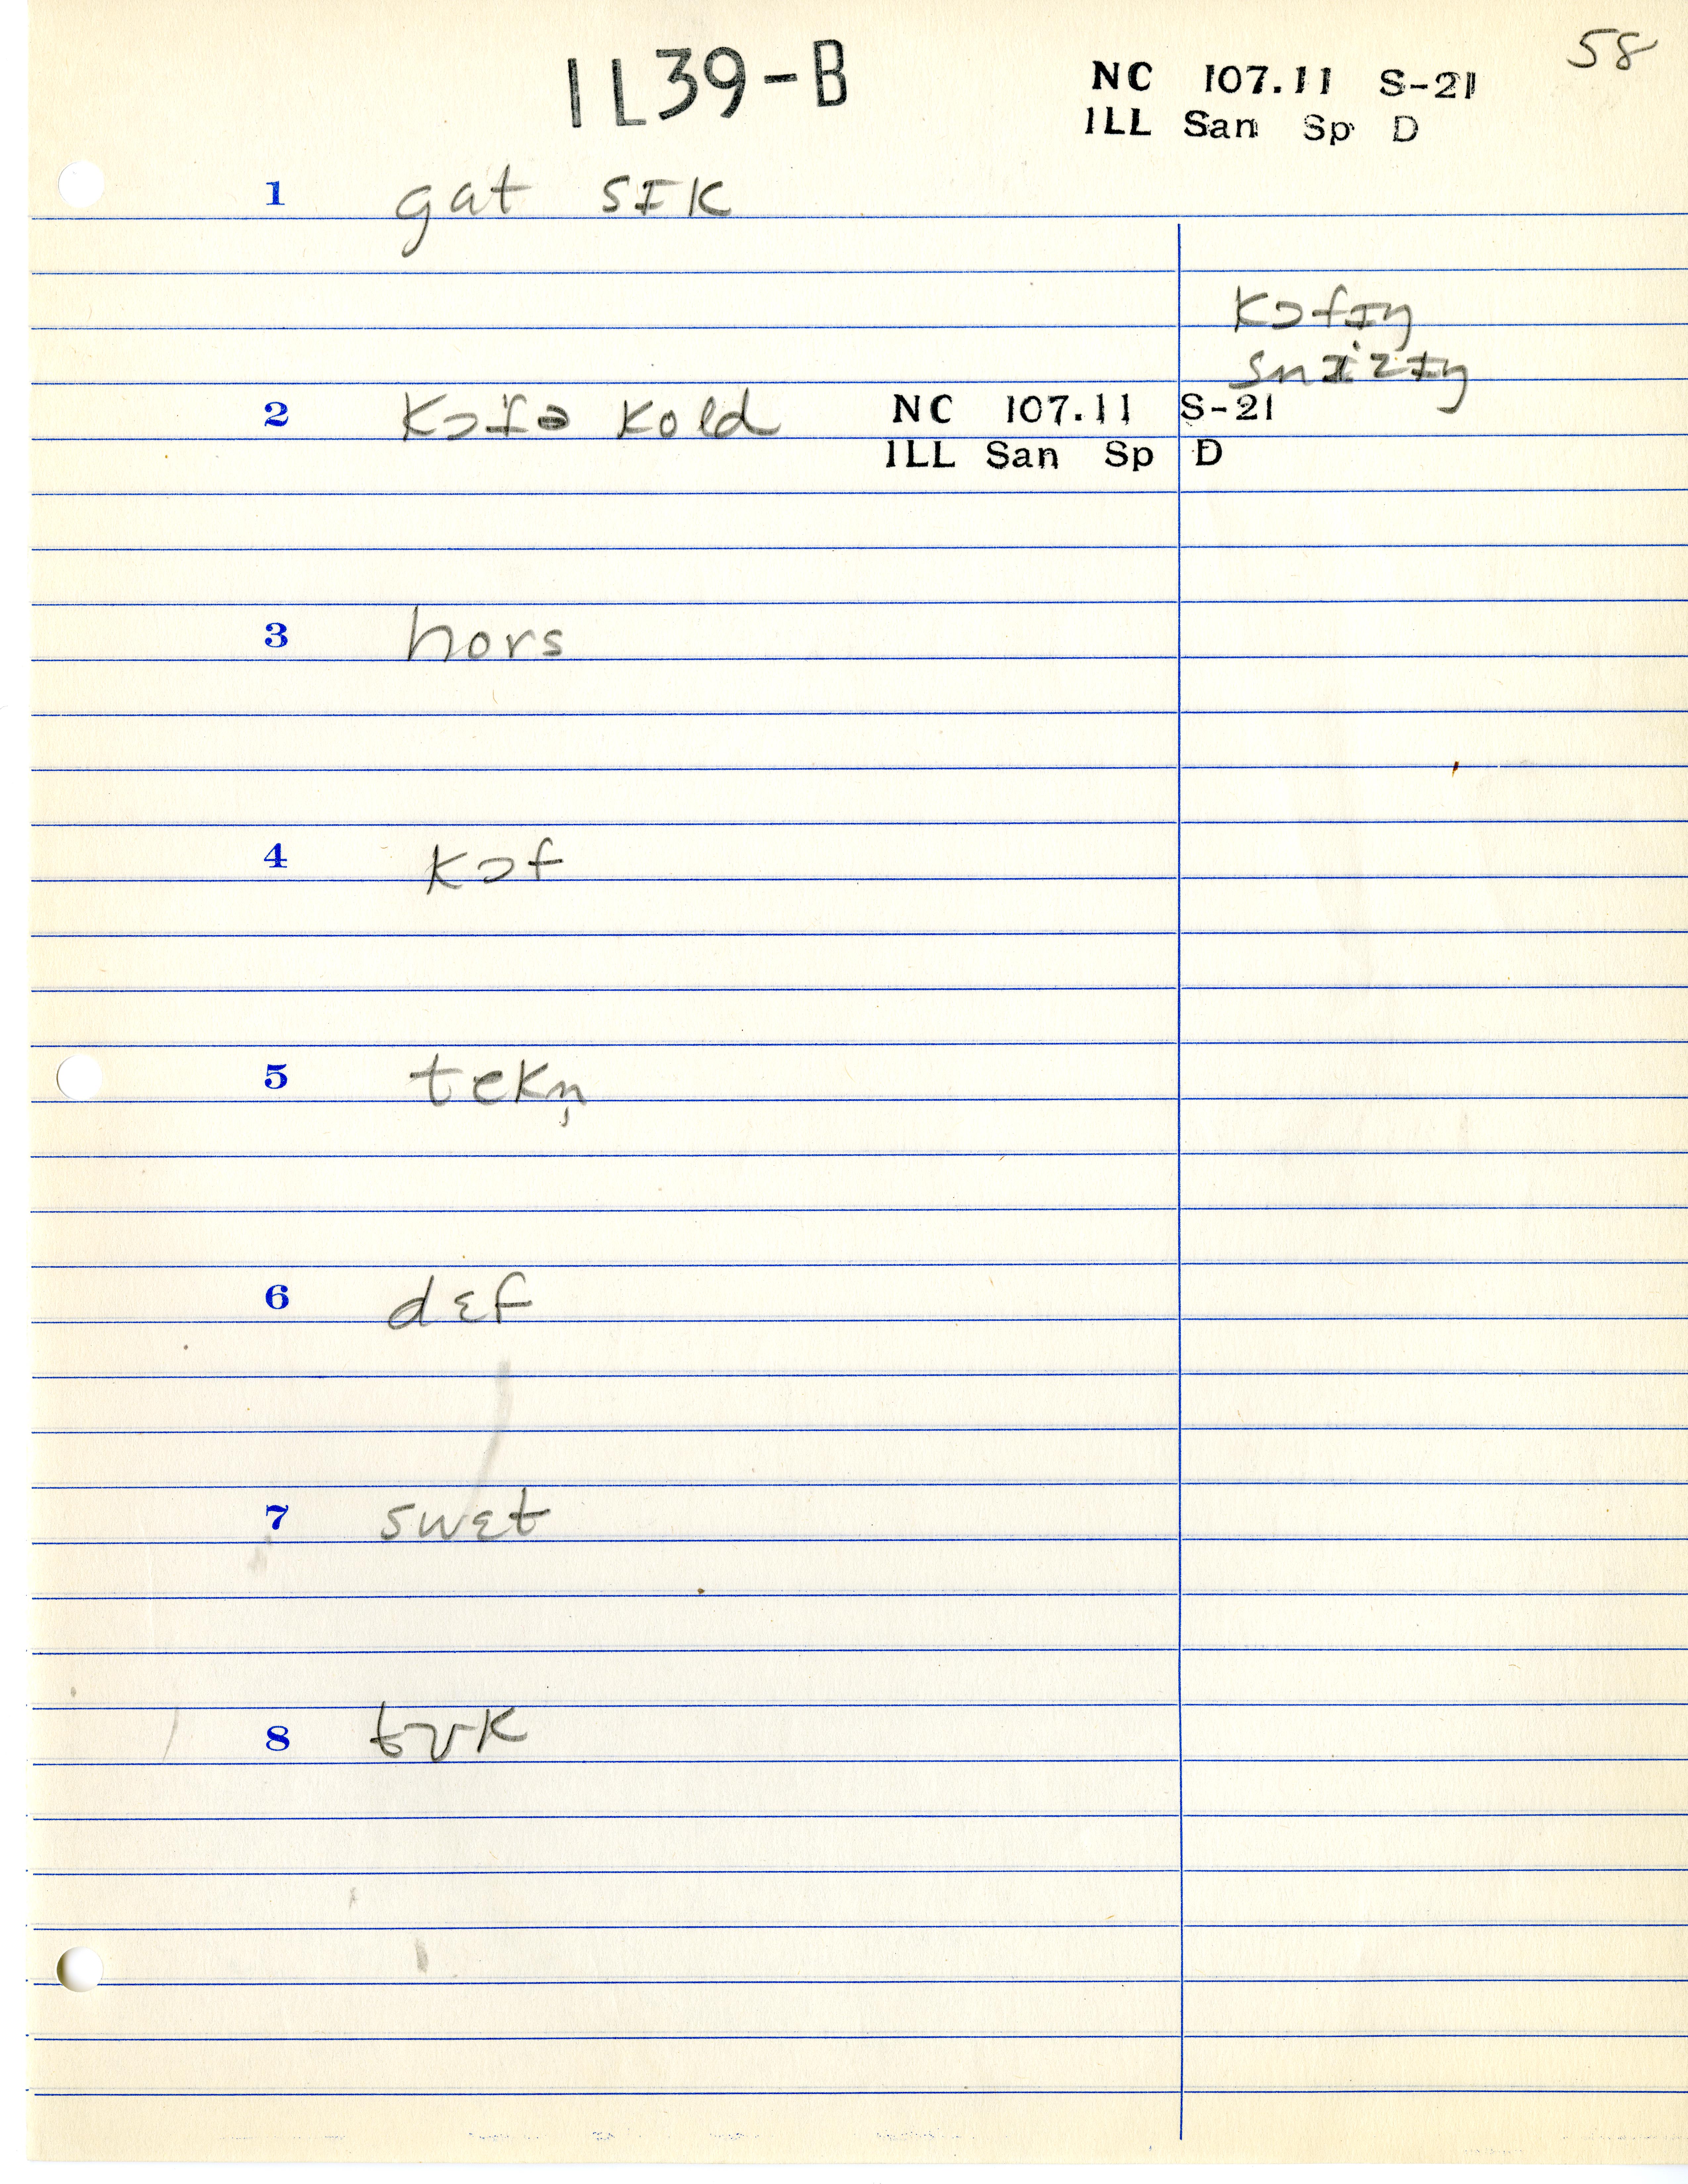 58
IL39-B
NC 107.11 S-21
ILL San Sp D
1 gat sɪk
kɔfɪŋ
snizɪŋ
2 kold
NC 107.11 S-21
ILL San Sp D
3 hors
4 kɔf
5 tekn̩
6 dɛf
7 swɛt
8 tʊk